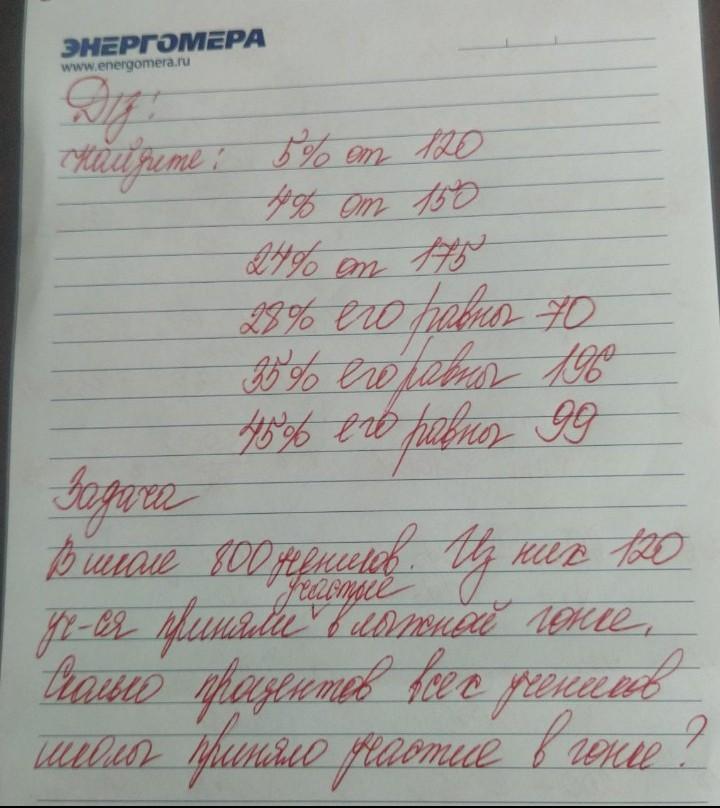 ЭНЕРГОМЕРА
www.energomera.ru
Д/з:
Найдите: 5% от 120
4% от 150
24% от 175
28% его равны 70
35% его равны 196
45% его равны 99
Задача
В школе 800 учеников. Из них 120
участие
уч-ся приняли в лыжной гонке.
Сколько процентов всех учеников
школы приняло участие в гонке?